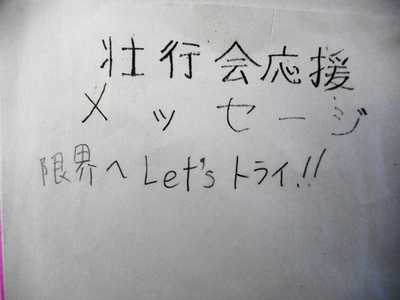 壮行会応援
メッセージ
限界へLet'sトライ!!